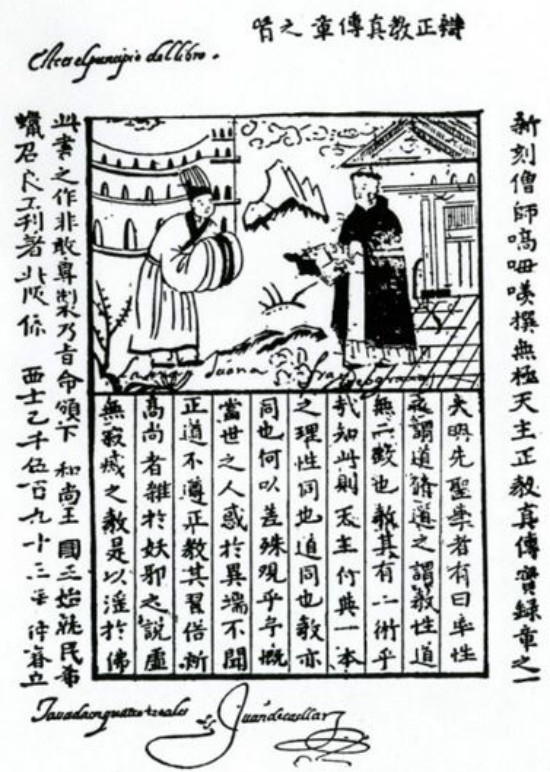 辯正教真傳章之首
Este es el principio del libro.
新刻僧師嗃呣羨撰無極天主正教真傳實錄章之一
夫明先聖學者有曰率性
之謂道脩道之謂教性道
無二致也教其有二術乎
哉知此則天主付與一本
之理性同也道同也教亦
同也何以差殊觀乎予慨
當世之人惑於異端不聞
正道不遵正教其習俗所
高尚者雜於妖邪之說虛
無寂滅之教是以淫於佛
此書之作非敢專製乃旨命頒下 和尚王 國王始就民希
蠟召良工刊著此版係 西士乙千伍百九十三年仲春立
Tasada en quatro reales
Juan de cuellar